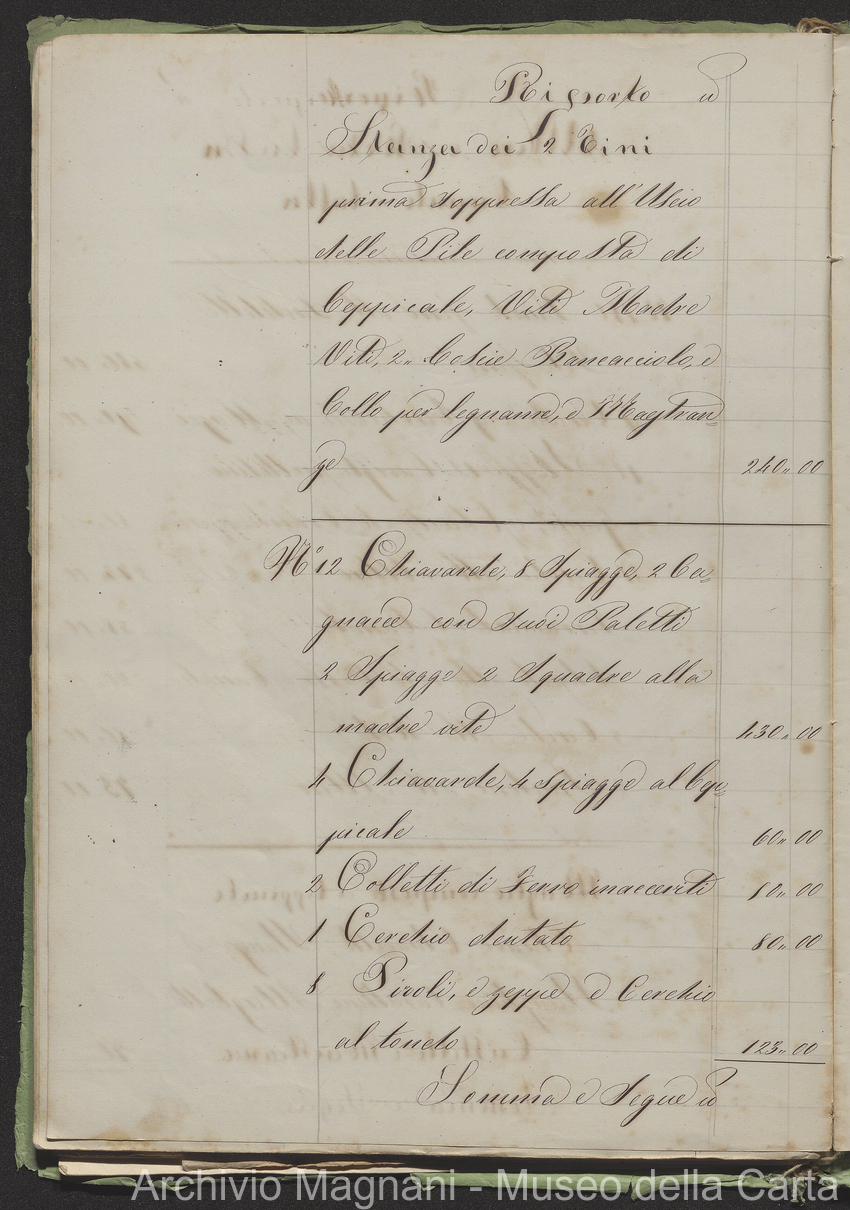 Riporto
Stanza dei 2 Tini
prima soppressa all'Uscio
delle Pile composta di
Ceppicale, Vite Madre
Vite, 2,, Coscie Bancacciolo, e
Collo per legname, e Maestran=
ze 240,,00
N.° 12 Chiavarde, 8 Spiagge, 2 Ca=
gnacce con suoi Paletti
2 Spiagge 2 Squadre alla
madre vite 430,,00
4 Chiavarde, 4 spiagge al Cep=
picale 60,,00
2 Colletti di Ferro inacceriti 80,,00
1 Cerchio dentato 80,,00
8 Piroli, e zeppe e Cerchio
al tondo 123,,00
Somma e Segue
Archivio Magnani - Museo della Carta